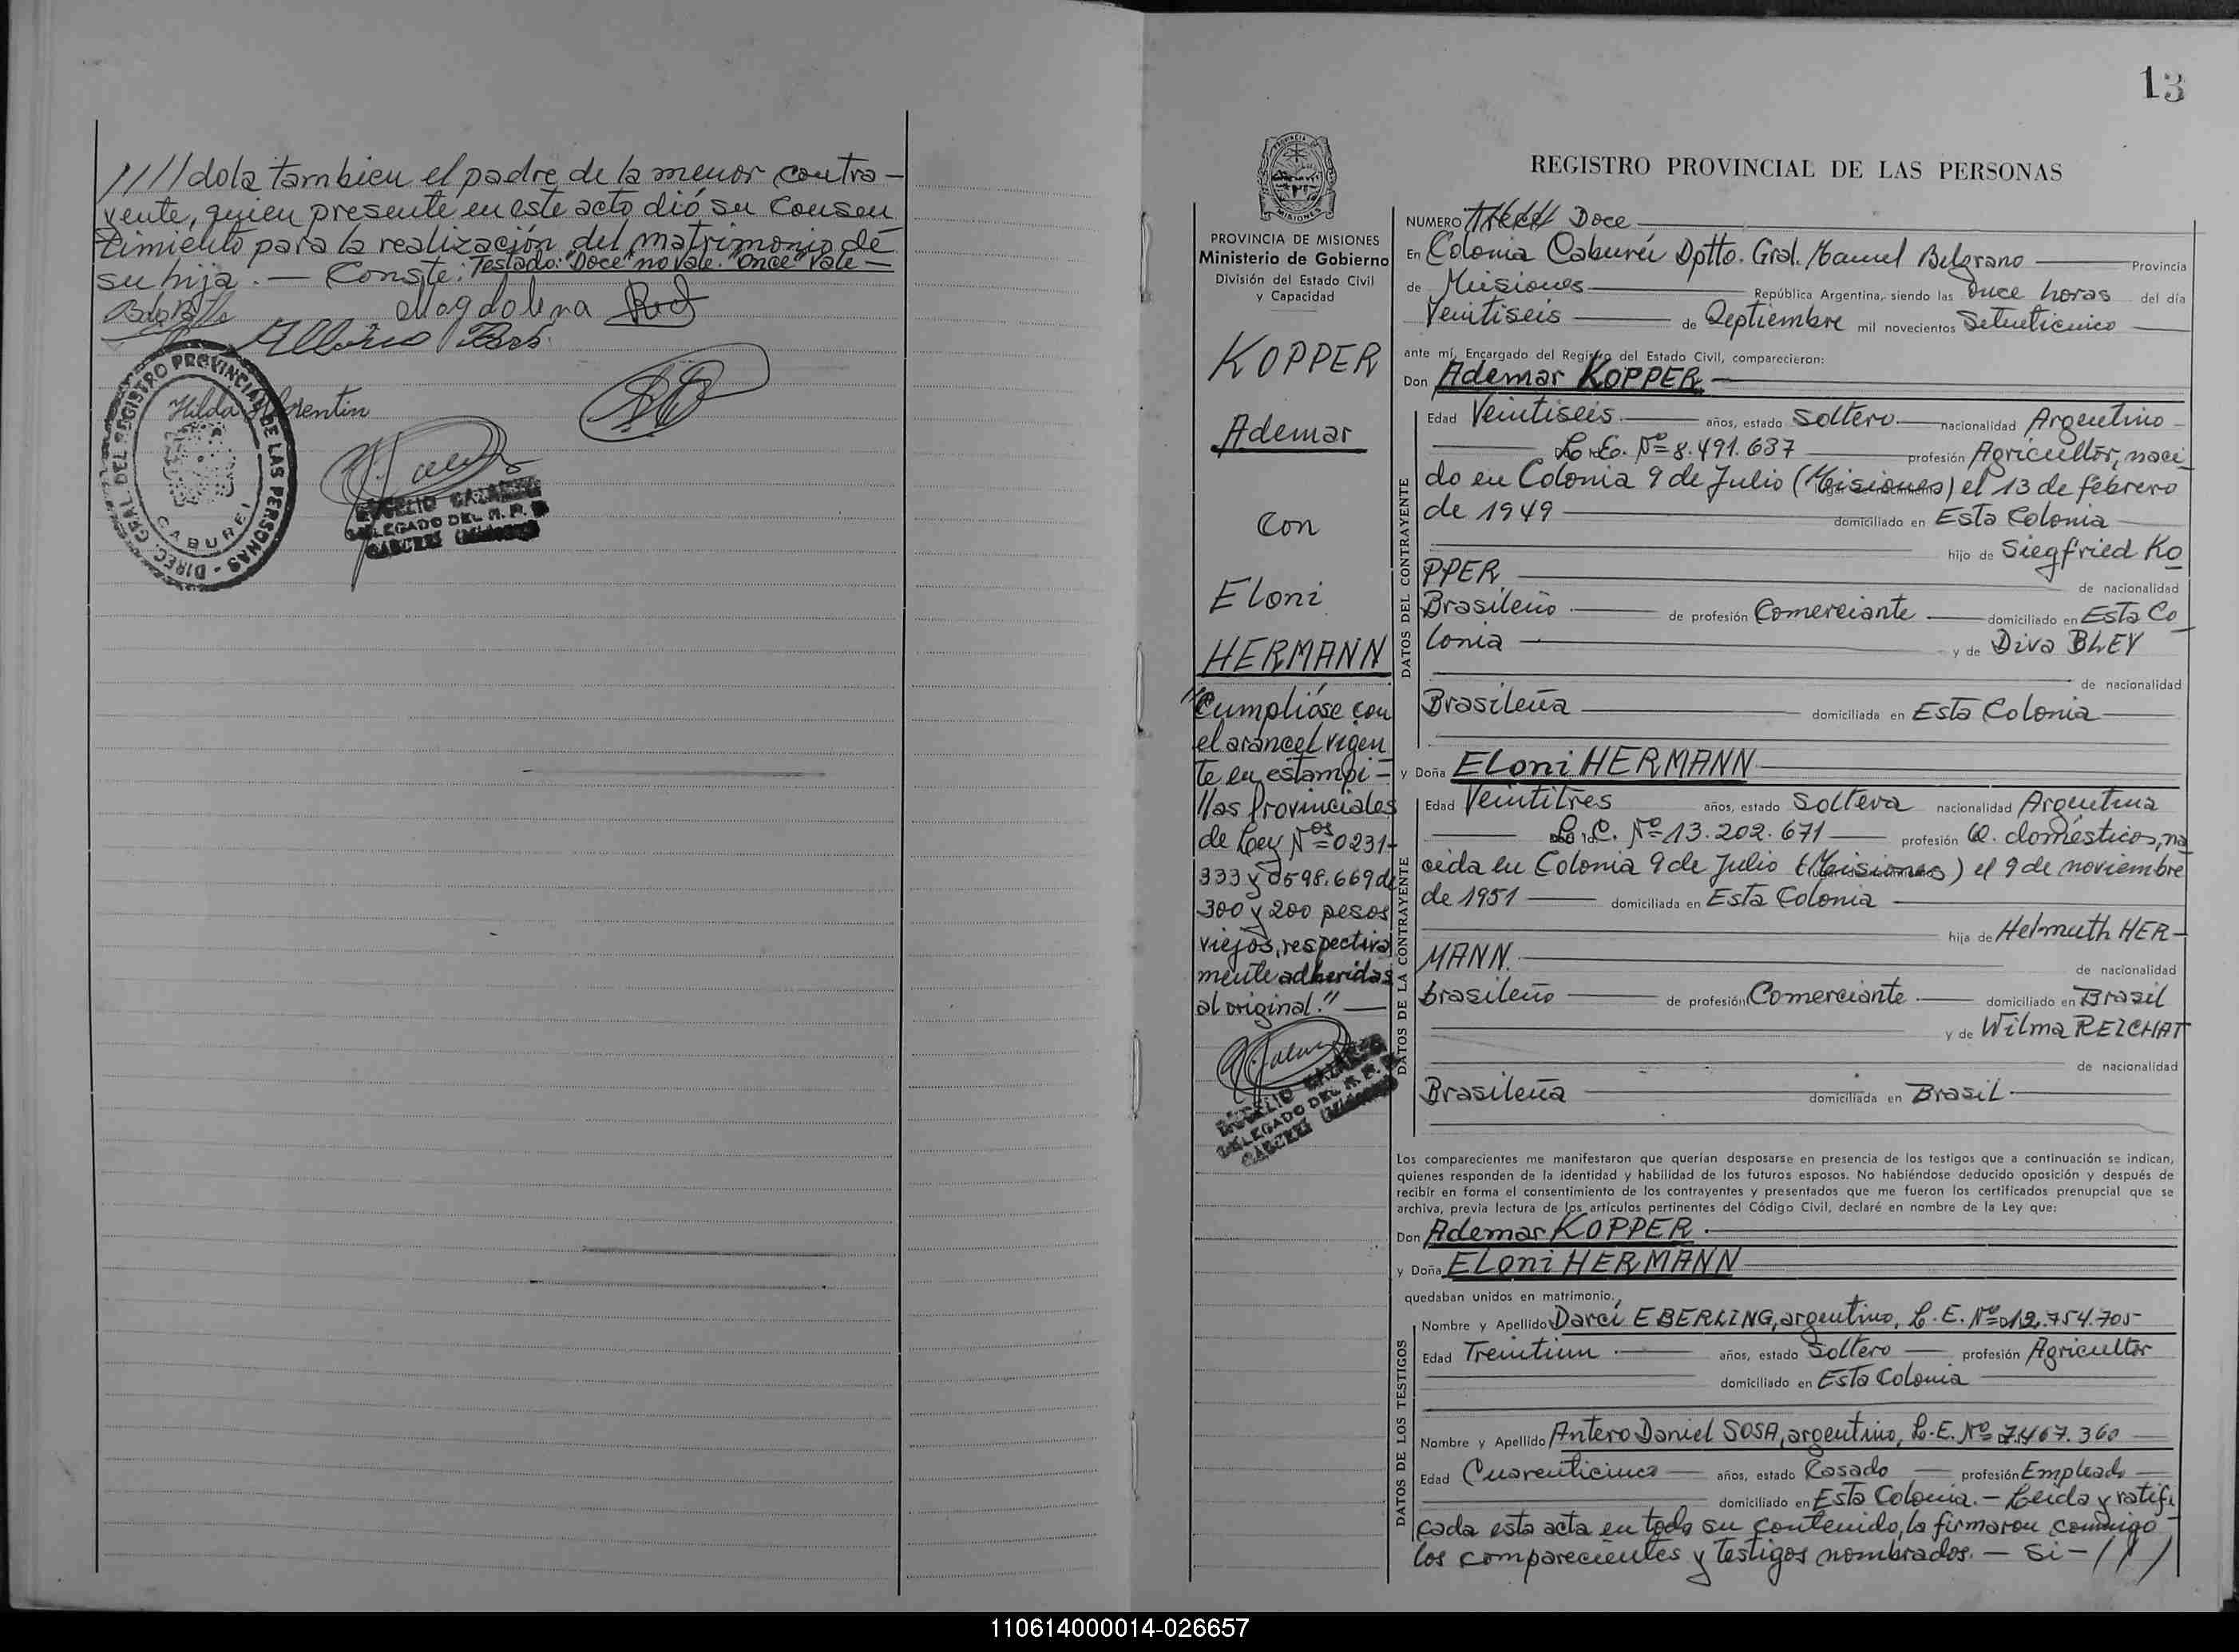 ////dola tambien el padre de la menor contra-
yente, quien presente en este acto dió su consen
timiento para la realización del matrimonio de
su hija. — Conste: Testado: "Doce" no vale. "Once" Vale —
Magdalena
Hilda Florentin
DIREC. GRAL. DEL REGISTRO PROVINCIAL DE LAS PERSONAS
CABUREI
ROGELIO
DELEGADO DEL R. P. P.
CABUREI (Misiones)
13
REGISTRO PROVINCIAL DE LAS PERSONAS
PROVINCIA DE MISIONES
Ministerio de Gobierno
División del Estado Civil
y Capacidad
KOPPER
Ademar
con
Eloni
HERMANN
"Cumplióse con
el arancel vigen
te en estampi-
llas Provinciales
de Ley Nºs 0231-
333 y 0598.669 de
300 y 200 pesos
viejos, respectiva
mente adheridas
al original." —
ROGELIO
DELEGADO DEL R. P. P.
CABUREI (Misiones)
NUMERO Doce
En Colonia Cabureí Dptto. Gral. Manuel Belgrano Provincia
de Misiones República Argentina, siendo las once horas del día
Veintiseis de Septiembre mil novecientos Setenticinco
ante mí, Encargado del Registro del Estado Civil, comparecieron:
Don Ademar KOPPER
DATOS DEL CONTRAYENTE
Edad Veintiseis años, estado Soltero nacionalidad Argentino
L.E. Nº 8.491.637 profesión Agricultor, naci
do en Colonia 9 de Julio (Misiones) el 13 de febrero
de 1949 domiciliado en Esta Colonia
hijo de Siegfried KO
PPER de nacionalidad
Brasileño de profesión Comerciante domiciliado en Esta Co
lonia y de Diva BLEY
de nacionalidad
Brasileña domiciliada en Esta Colonia
y Doña Eloni HERMANN
DATOS DE LA CONTRAYENTE
Edad Veintitres años, estado Soltera nacionalidad Argentina
L.C. Nº 13.202.671 profesión Q. domésticos, na
cida en Colonia 9 de Julio (Misiones) el 9 de noviembre
de 1951 domiciliada en Esta Colonia
hija de Helmuth HER-
MANN. de nacionalidad
brasileño de profesión Comerciante domiciliado en Brasil
y de Wilma REICHAT
de nacionalidad
Brasileña domiciliada en Brasil
Los comparecientes me manifestaron que querían desposarse en presencia de los testigos que a continuación se indican,
quienes responden de la identidad y habilidad de los futuros esposos. No habiéndose deducido oposición y después de
recibir en forma el consentimiento de los contrayentes y presentados que me fueron los certificados prenupcial que se
archiva, previa lectura de los artículos pertinentes del Código Civil, declaré en nombre de la Ley que:
Don Ademar KOPPER
y Doña Eloni HERMANN
quedaban unidos en matrimonio.
DATOS DE LOS TESTIGOS
Nombre y Apellido Darci EBERLING, argentino, L.E. Nº 12.754.705
Edad Treintiun años, estado Soltero profesión Agricultor
domiciliado en Esta Colonia
Nombre y Apellido Antero Daniel SOSA, argentino, L.E. Nº 7.467.360
Edad Cuarenticinco años, estado Casado profesión Empleado
domiciliado en Esta Colonia. — Leida y ratifi
cada esta acta en todo su contenido, la firmaron conmigo
los comparecientes y testigos nombrados. — Si - ///
110614000014-026657